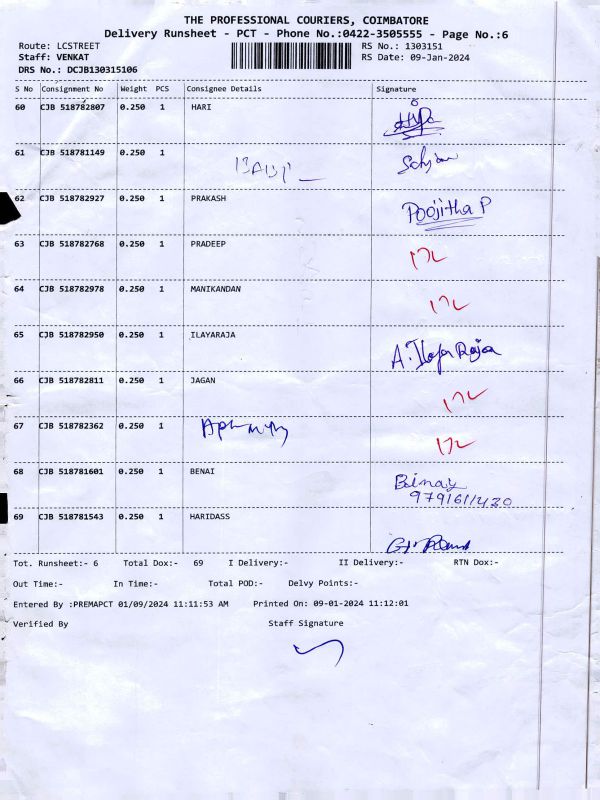 THE PROFESSIONAL COURIERS, COIMBATORE
Delivery Runsheet - PCT - Phone No.:0422-3505555 - Page No.:6
Route: LCSTREET RS No.: 1303151
Staff: VENKAT RS Date: 09-Jan-2024
DRS No.: DCJB130315106
S No Consignment No Weight PCS Consignee Details Signature
60 CJB 518782807 0.250 1 HARI
61 CJB 518781149 0.250 1
62 CJB 518782927 0.250 1 PRAKASH Poojitha P
63 CJB 518782768 0.250 1 PRADEEP
64 CJB 518782978 0.250 1 MANIKANDAN
65 CJB 518782950 0.250 1 ILAYARAJA A. Ilaya Raja
66 CJB 518782811 0.250 1 JAGAN
67 CJB 518782362 0.250 1
68 CJB 518781601 0.250 1 BENAI Binay
9791611430
69 CJB 518781543 0.250 1 HARIDASS
Tot. Runsheet:- 6 Total Dox:- 69 I Delivery:- II Delivery:- RTN Dox:-
Out Time:- In Time:- Total POD:- Delvy Points:-
Entered By :PREMAPCT 01/09/2024 11:11:53 AM Printed On: 09-01-2024 11:12:01
Verified By Staff Signature